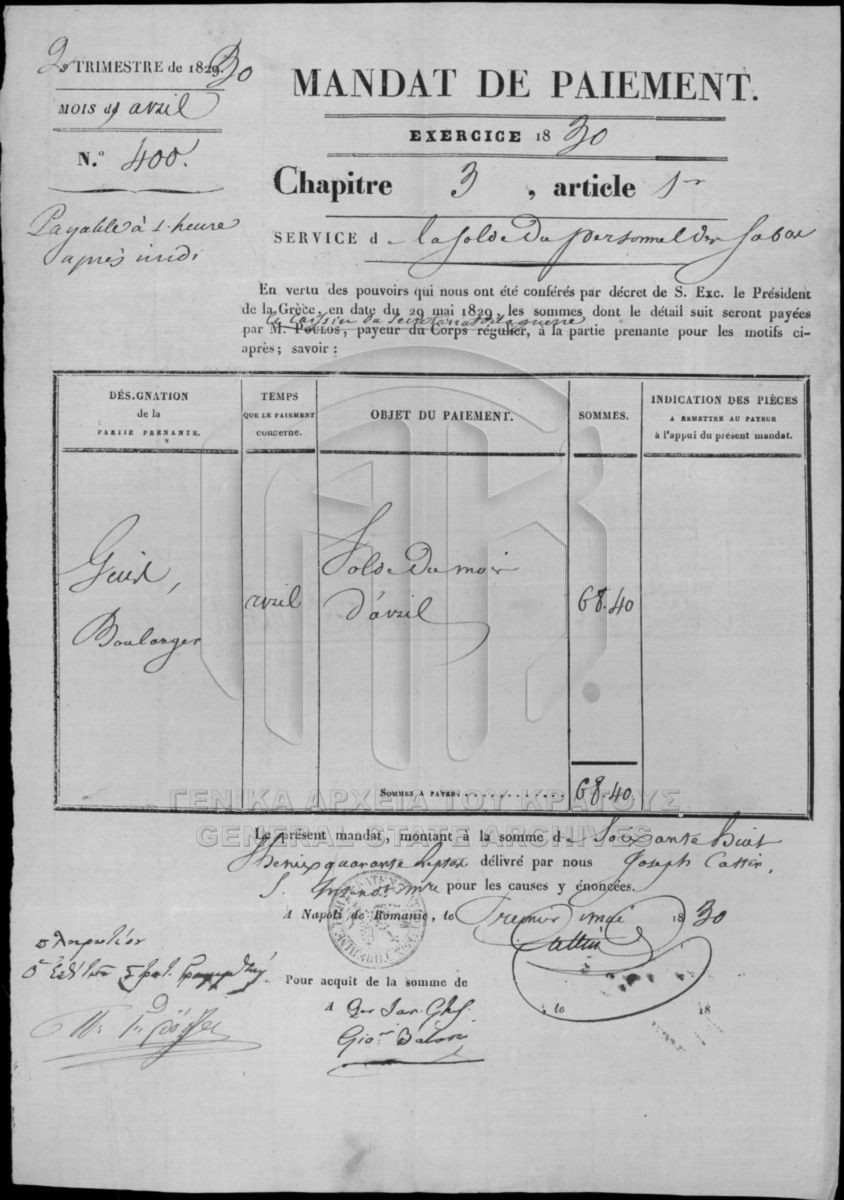 2e TRIMESTRE de 1829. 30
MOIS d' avril
N.° 400.
Payable à 1 heure
après midi
MANDAT DE PAIEMENT.
EXERCICE 18 30
Chapitre 3 , article 1er
SERVICE de la solde du personnel des
En vertu des pouvoirs qui nous ont été conférés par décret de S. Exc. le Président
de la Grèce, en date du 29 mai 1829, les sommes dont le détail suit seront payées
le caissier du secrétariat de la guerre
par M. POULOS, payeur du Corps régulier, à la partie prenante pour les motifs ci-
après; savoir :
DÉSIGNATION
de la
PARTIE PRENANTE.
TEMPS
QUE LE PAIEMENT
concerne.
OBJET DU PAIEMENT.
SOMMES.
INDICATION DES PIÈCES
A REMETTRE AU PAYEUR
à l'appui du présent mandat.
Boulanger
avril
Solde du mois
d'avril
68.40
SOMMES A PAYER............
68.40
ΓΕΝΙΚΑ ΑΡΧΕΙΑ ΤΟΥ ΚΡΑΤΟΥΣ
GENERAL STATE ARCHIVES
Le présent mandat, montant à la somme de Soixante huit
Phenix quarante lepta délivré par nous Joseph Cattin,
S. Intend. mre pour les causes y énoncées.
A Napoli de Romanie, le Premier mai 18 30
Cattin
πληρωτέον
Pour acquit de la somme de
A
, le 18
Gior.